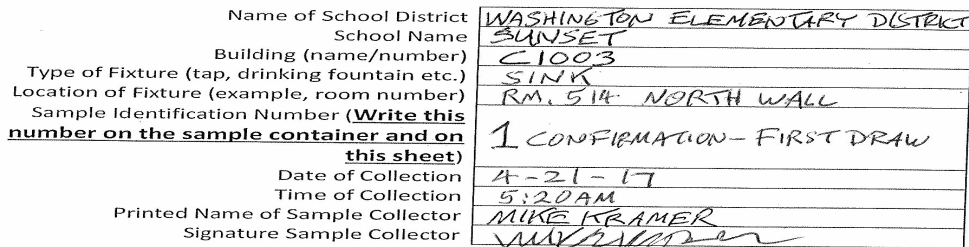 Name of School District WASHINGTON ELEMENTARY DISTRICT
School Name SUNSET
Building (name/number) C1003
Type of Fixture (tap, drinking fountain etc.) SINK
Location of Fixture (example, room number) RM. 514 NORTH WALL
Sample Identification Number (Write this
number on the sample container and on
this sheet) 1 CONFIRMATION - FIRST DRAW
Date of Collection 4-21-17
Time of Collection 5:20AM
Printed Name of Sample Collector MIKE KRAMER
Signature Sample Collector